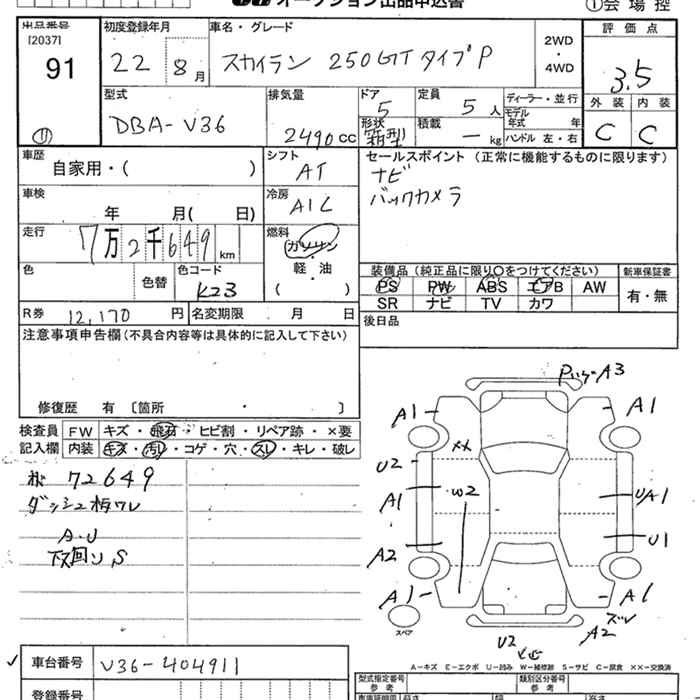 オークション出品申込書
①会場控
出品番号
[2037]
91
⑪
初度登録年月
22 8月
車名・グレード
スカイライン 250GT タイプP
2WD
・
4WD
評価点
3.5
外装 内装
C C
型式
DBA-V36
排気量
2490cc
ドア
5
形状
箱型
定員
5人
積載
ー kg
ディーラー・並行
モデル年式 年
ハンドル 左・右
車歴
自家用・( )
シフト
AT
セールスポイント(正常に機能するものに限ります)
ナビ
バックカメラ
車検
年 月( 日)
冷房
A/C
走行
7万2千649km
燃料
ガソリン
軽・油
( )
色
色替
色コード
K23
装備品(純正品に限り○をつけてください)
新車保証書
PS PW ABS エアB AW
SR ナビ TV カワ
有・無
R券 12,170円
名変期限 月 日
後日品
注意事項申告欄(不具合内容等は具体的に記入して下さい)
修復歴 有〔箇所 ・ 〕
検査員
記入欄
FW キズ・飛石・ヒビ割・リペア跡・×要
内装 キズ・汚れ・コゲ・穴・スレ・キレ・破レ
72649
ダッシュ板ワレ
A.U
下回りS
A3
A1
A1
U2
××
A1
W2
UA1
A2
U1
A1
A1
ズレ
A2
U2
スペア
A−キズ E−エクボ U−凹み W−補修跡 S−サビ C−腐食 ××−交換済
✓
車台番号
V36-404911
登録番号
型式指定番号
参考
類別区分番号
参考